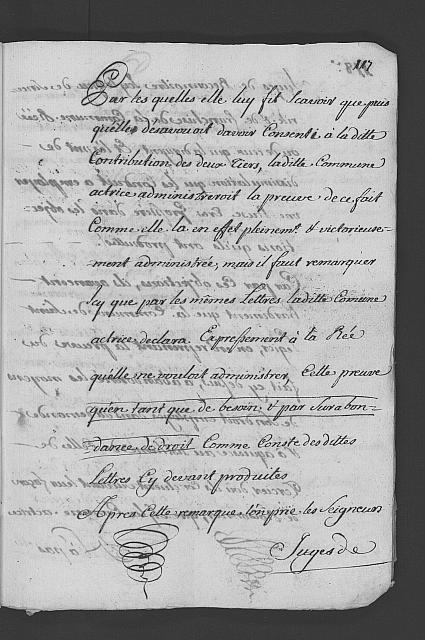 117
Par les quelles elle luy fit scavoir que puis
quelles desavouoit davoir Consenti à la ditte
Contribution des deux tiers, laditte Commune
actrice administreroit la preuve de ce fait
Comme elle la en effet pleinemt & victorieuse-
ment administrée, mais il faut remarquer
Icy que par les mêmes Lettres laditte Comune
actrice declara Expressement à la Rée
quelle ne vouloit administrer, Cette preuve
qu'en tant que de besoin & par Surabon=
dance de droit Comme Conste desdittes
Lettres Cy devant produites
Apres Cette remarque l'on prie les Seigneurs
Juges de